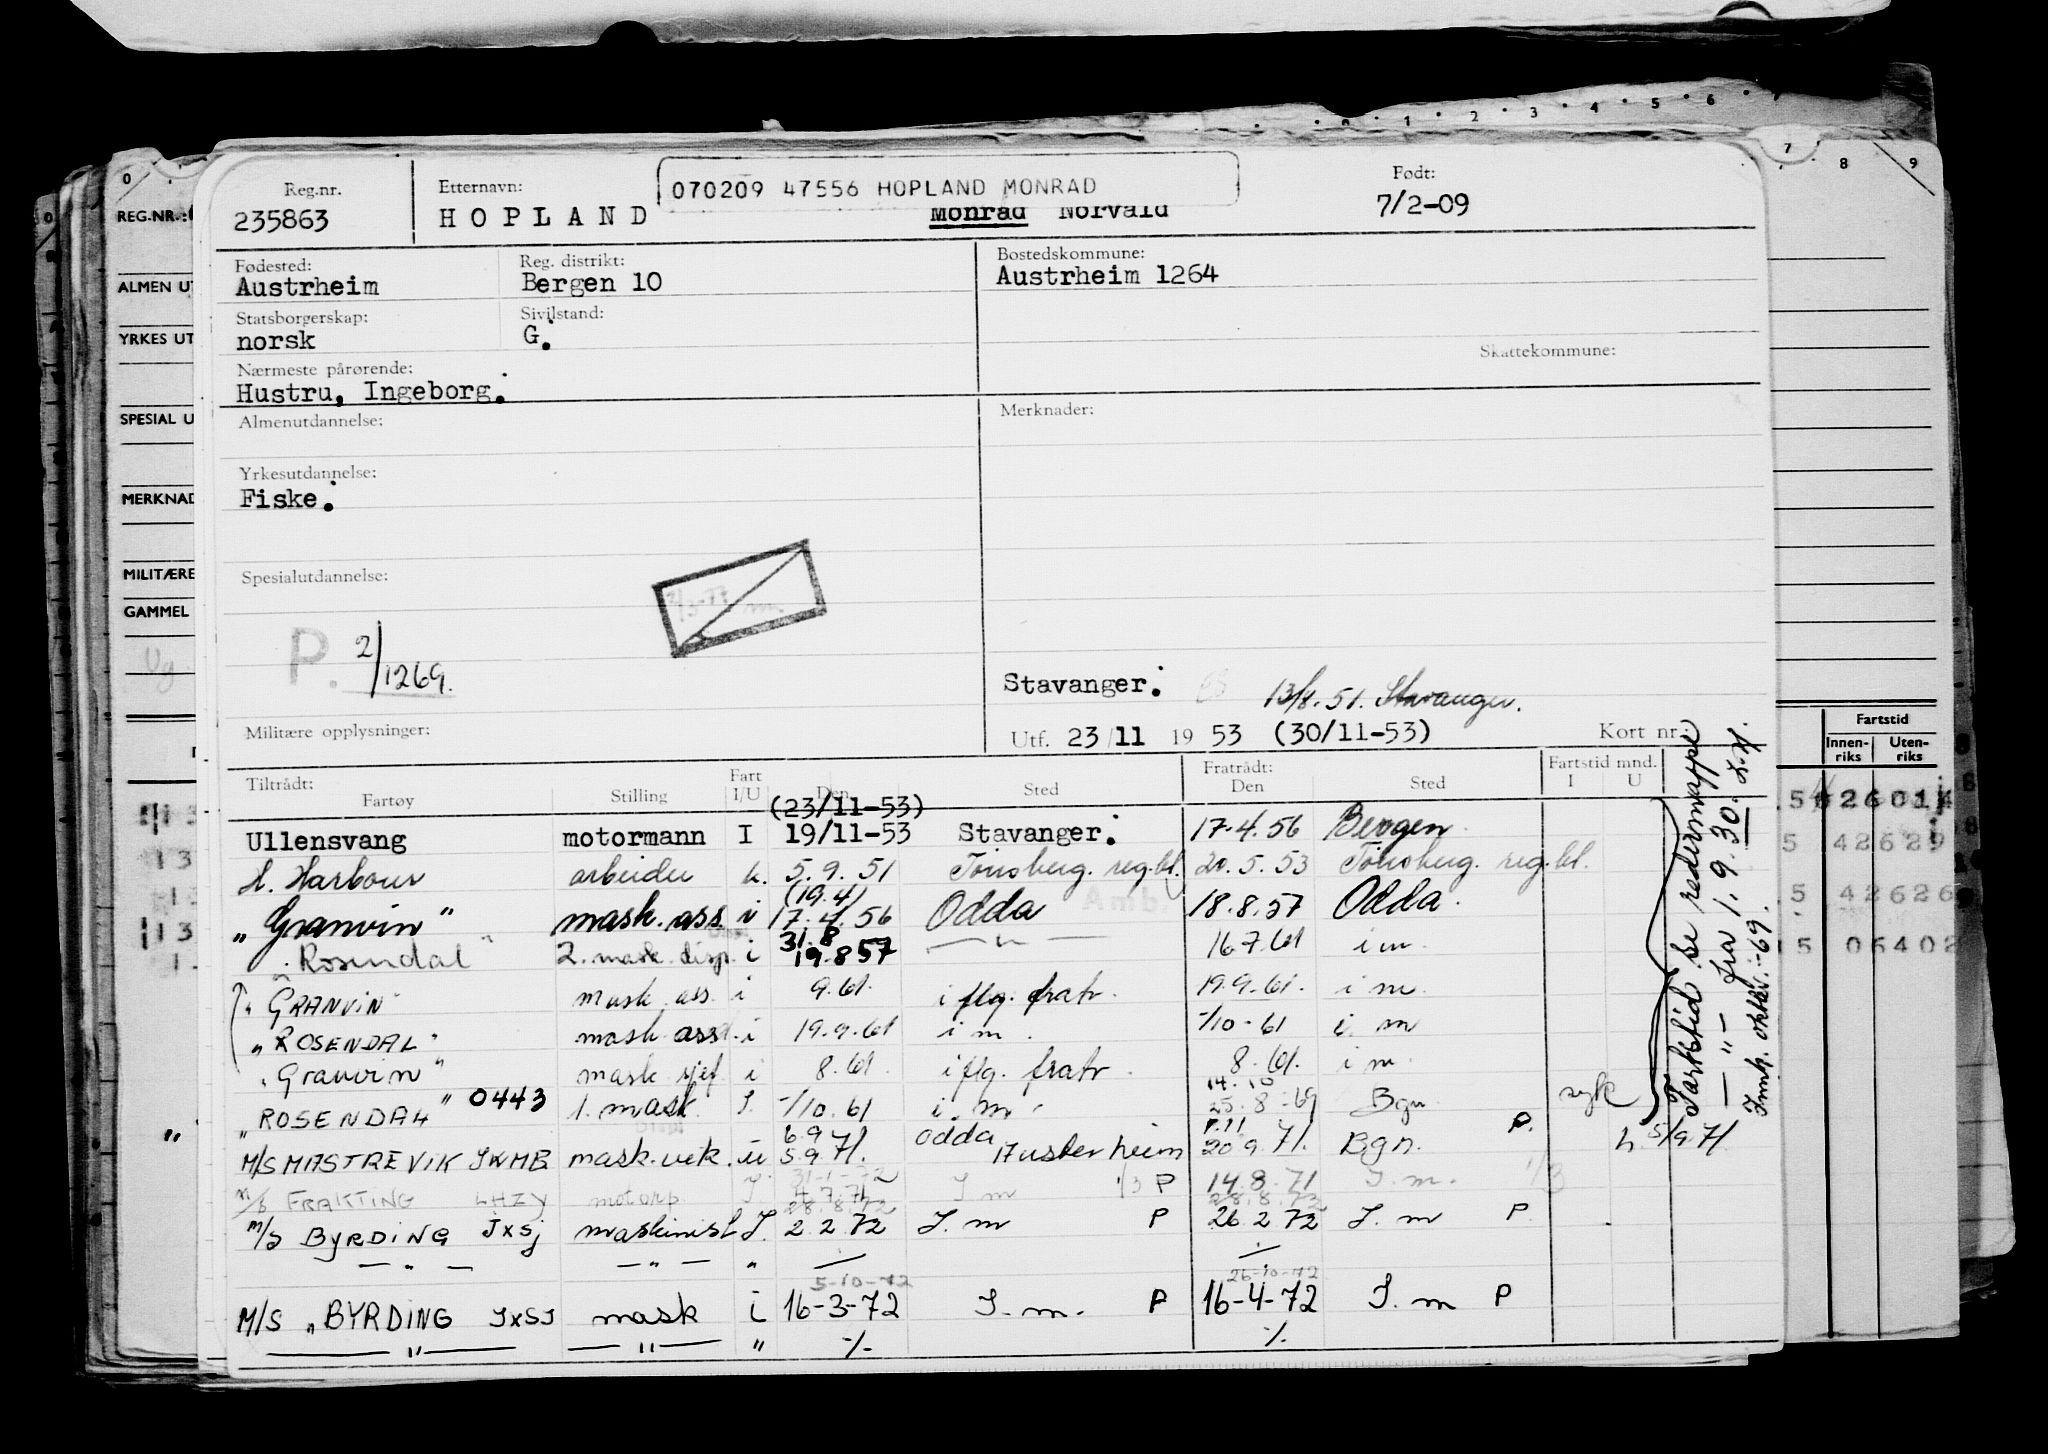 0 1 2 3 4 5 6 7
7 8 9
0
REG.NR.:
ALMEN UT
YRKES UT
SPESIAL U
MERKNAD
MILITÆRE
GAMMEL
Reg.nr. Etternavn: 070209 47556 HOPLAND MONRAD Født:
235863 HOPLAND Monrad Norvald 7/2-09
Fødested: Reg. distrikt: Bostedskommune:
Austrheim Bergen 10 Austrheim 1264
Statsborgerskap: Sivilstand:
norsk G.
Skattekommune:
Nærmeste pårørende:
Hustru, Ingeborg.
Almenutdannelse: Merknader:
Yrkesutdannelse:
Fiske.
Spesialutdannelse:
P. 2/1269.
Stavanger. 13/8.51. Stavanger.
Militære opplysninger: Utf. 23/11 1953 (30/11-53) Kort nr.
Tiltrådt: Fart Fratrådt: Fartstid mnd.
Fartøy Stilling I/U Den Sted Den Sted I U
(23/11-53)
Ullensvang motormann I 19/11-53 Stavanger. 17.4.56 Bergen
H. Harbour arbeider h. 5.9.51 Tönsberg. reg.bl. 20.5.53 Tönsberg. reg.bl.
(19.4)
"Granvin" mask. ass. i 17.4.56 Odda 18.8.57 Odda.
31.8
"Rosendal" 2. mask. disp. i 19.8 57 — " — 16 7.61 i m
"GRANVIN" mask. ass. i 9.61. i flg. fratr. 19.9.61. i m
"ROSENDAL" mask. asst. i 19.9.61 i m. -/10-61 i. m
"Granvin" mask. sjef. i 8.61. i flg. fratr. 8.61. i m.
14.10
"ROSENDAL" 0443 1. mask. I. -/10.61 i. m. 25.8-69 Bgn. syk
6.9 Odda P.11 P.
M/S MASTREVIK JWMB mask.vek. u 5.9.71. Austerheim 20 9.71. Bgn. h. 5/9.71.
31-1-72
M/S FRAKTING LHZY motorp. I. 4.7.71 I m 1/3 P 14.8.71 I. m. 1/3
28.8.72 28.8.72
M/S BYRDING JXSJ maskinist I. 2.2.72 I. m P 26.2 72 I. m P.
— " — — " — " -/- -/-
5-10-72 26-10-72
M/S "BYRDING JXSJ mask i 16-3-72 I. m. P 16-4-72 I. m P
— " — — " — " -/- -/-
Fartstid se redermappe
— " — fra 1.9.30. L.H.
Innk. oktbr.-69.
Fartstid
Innen-riks Uten-riks